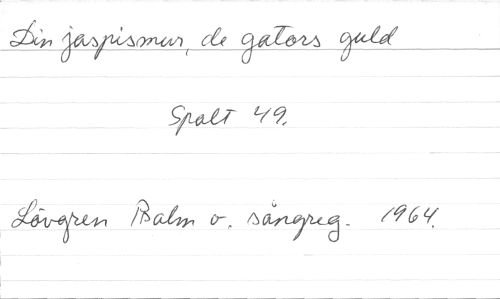 Din jaspismur, de gators guld
Spalt 49.
Lövgren Psalm o. sångreg. 1964.